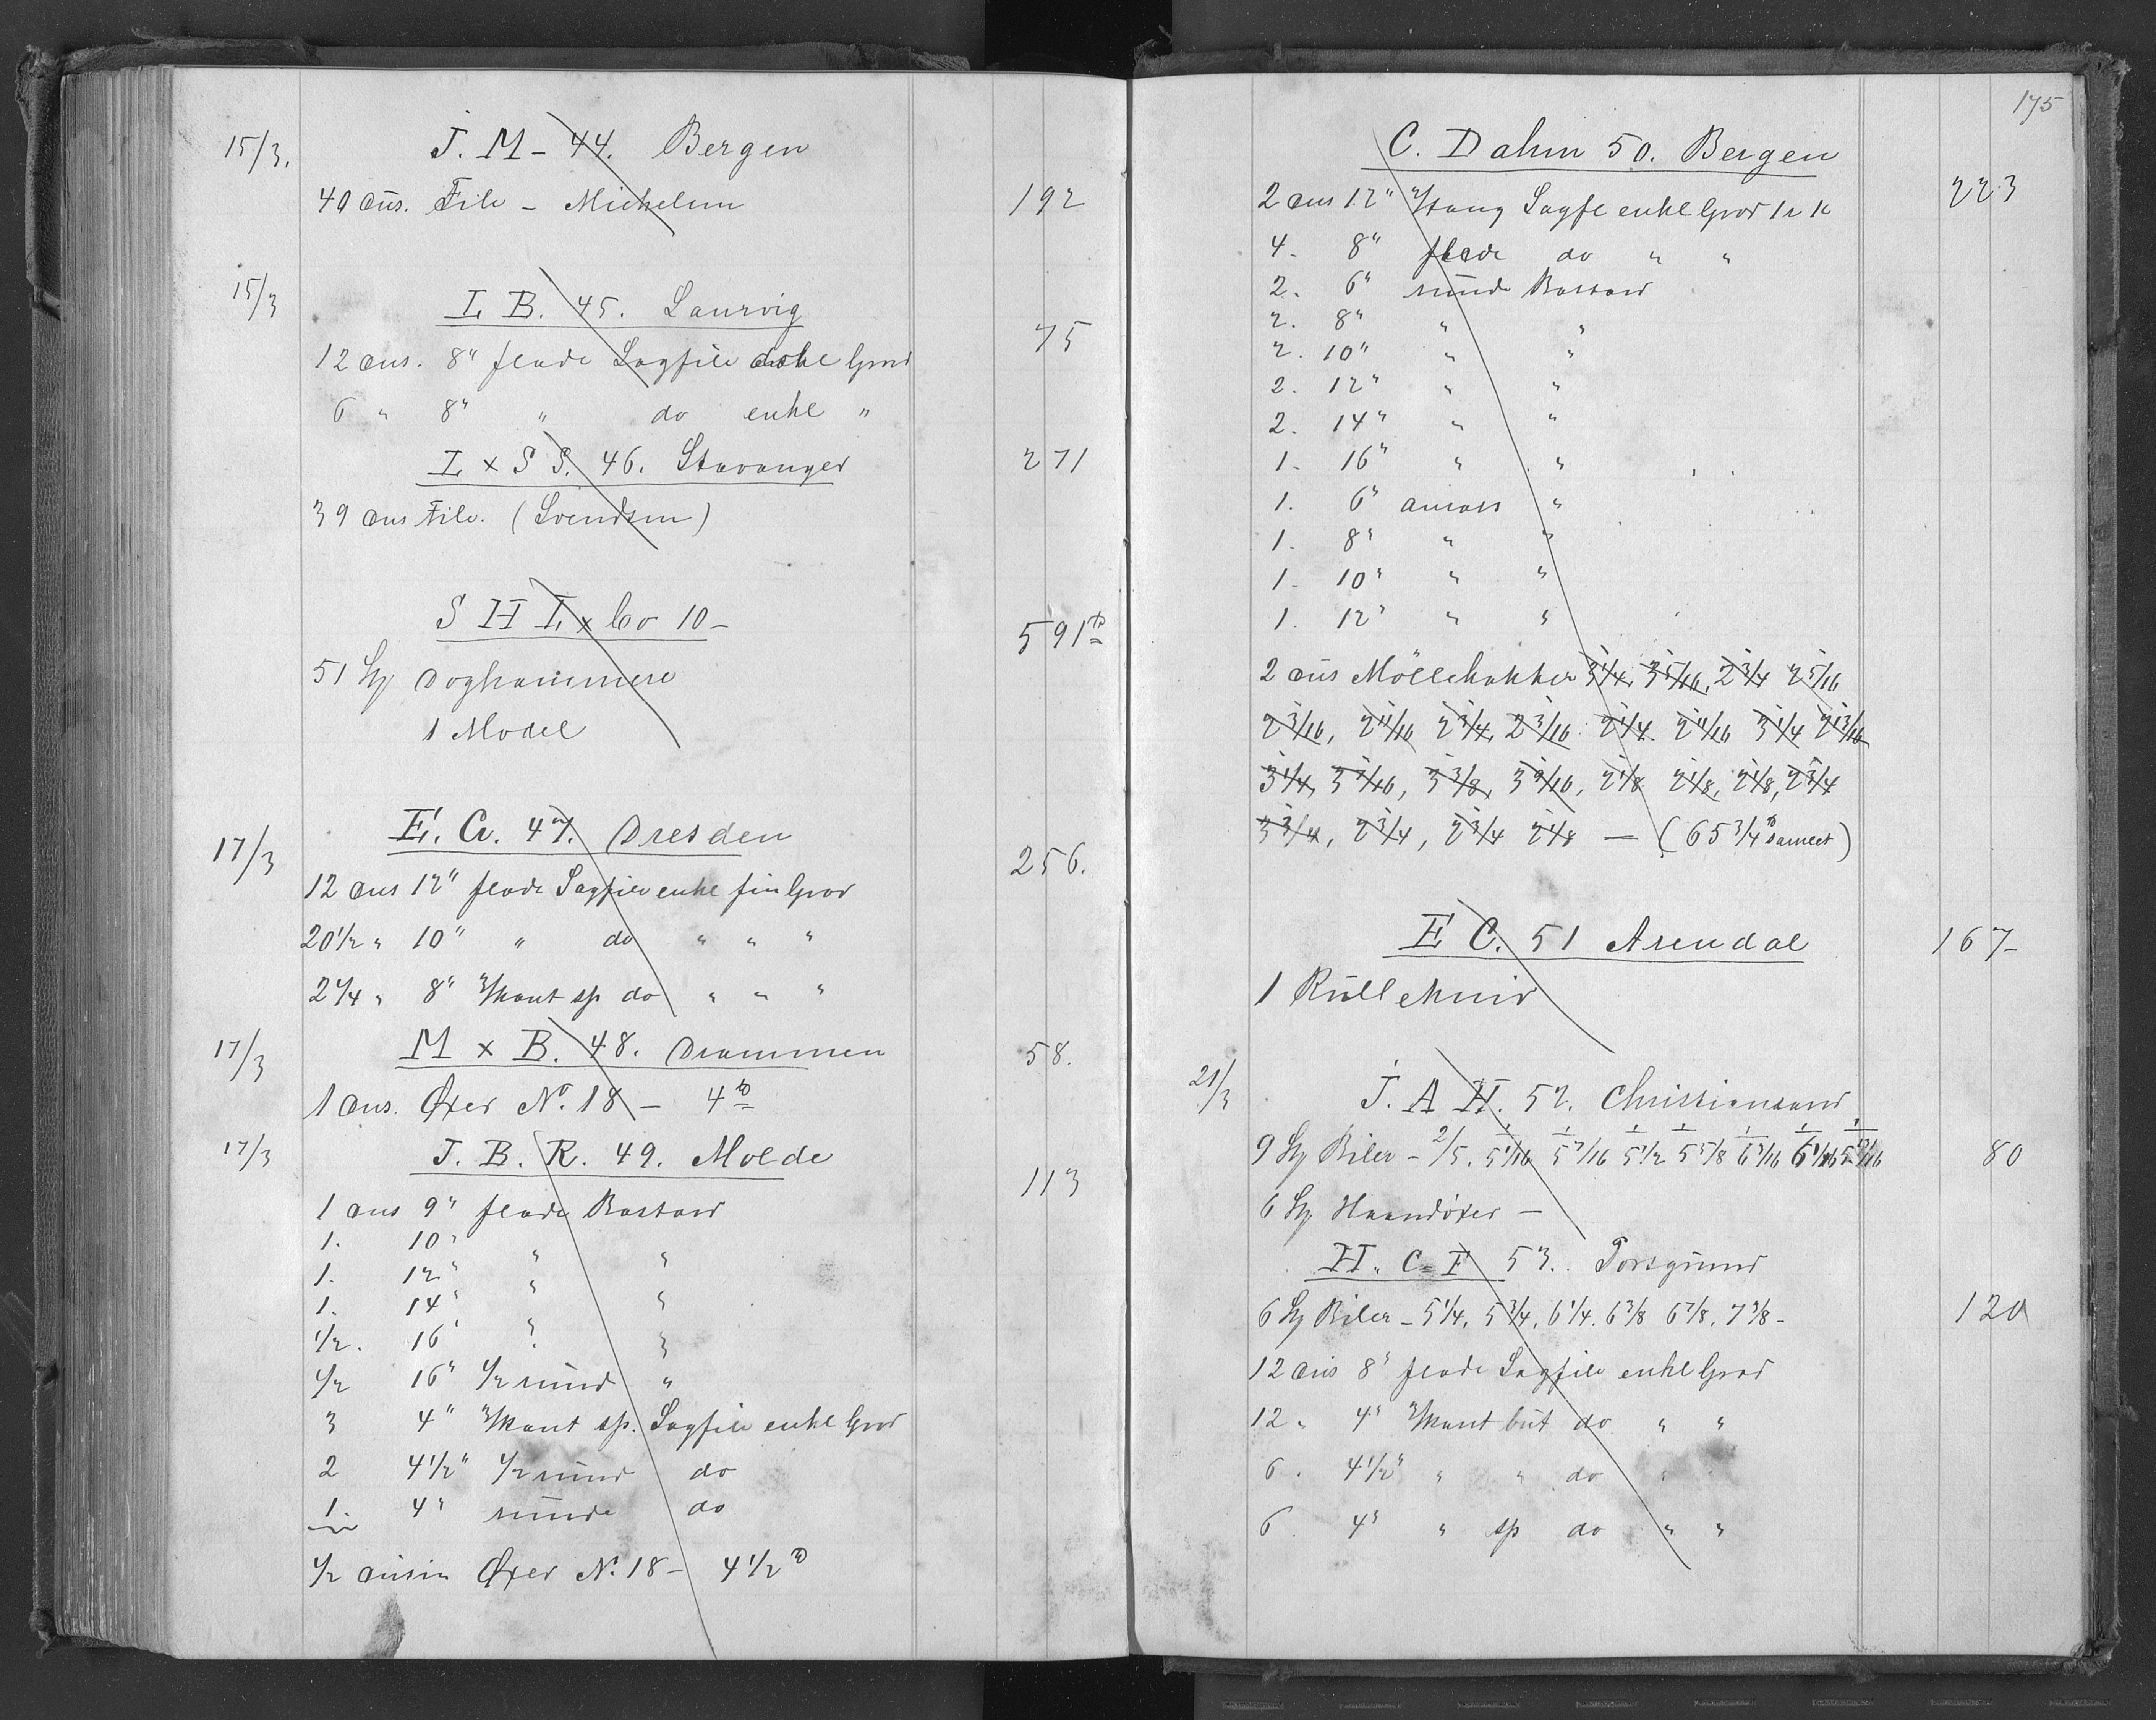 15/3. J. M - 44. Bergen
40 dus. File - Michelsen 192
15/3 I. B. 45. Laurvig
12 dus. 8" flade Sagfile dobl Grad 75
6 " 8" " do enkl "
I x S S. 46. Stavanger 271
39 dus File. (Svendsen)
S H L x Co 10 - 591 ℔
51 Stk Doghammere
1 Model
17/3 E. Cr. 47. Dresden 256.
12 dus 12" flade Sagfile enkl fin Grad
20 1/2 " 10" " do " " "
2 1/4 " 8" 3/kant sp do " " "
17/3 M x B. 48. Drammen 58.
1 dus. Øxer No. 18 - 4 ℔
17/3 J. B. R. 49. Molde 113
1 dus 9" flade Bastard
1. 10" " "
1. 12" " "
1. 14" " "
1/2. 16" " "
1/2 16" 1/2 rund "
3 4" 3/kant sp. Sagfile enkl Grad
2 4 1/2" 1/2 rund do
1. 4" runde do
1/2 dusin Øxer No. 18 - 4 1/2 ℔
175
C. Dahm 50. Bergen
2 dus 12" Stang Sagfl enkl Grad 223
4. 8" flade do " "
2. 6" runde Bastard
2. 8" " "
2. 10" " "
2. 12" " "
2. 14" " "
1. 16" " "
1. 6" ansats "
1. 8" " "
1. 10" " "
1. 12" " "
2 dus Möllehakker 3 1/4, 3 5/16, 2 3/4 2 5/16
2 3/16, 2 11/16 2 3/4, 2 3/16 2 1/4. 2 11/16 3 1/4 2 13/16
3 1/4, 3 3/16, 3 3/8, 3 9/16, 2 1/8 2 1/8, 2 1/8, 2 3/4
3 3/4, 2 3/4, 2 3/4 2 1/8 — (65 3/4 ℔ samlet)
E C. 51 Arendal 167-
1 Rullekniv
21/3 J. A H. 52. Christiansand
9 Stk Biler - 2/5. 5 1/16 5 7/16 5 1/2 5 5/8 6 3/16 6 1/16 5 13/16 80
6 Stk Haandøxer —
H. C = F 53. Porsgrund
6 Stk Biler - 5 1/4, 5 3/4, 6 1/4. 6 3/8 6 7/8. 7 3/8 - 120
12 dus 8" flade Sagfile enkl Grad
12 " 4" 3/kant but do " "
6. 4 1/2" " " do " "
6. 4" " sp do " "